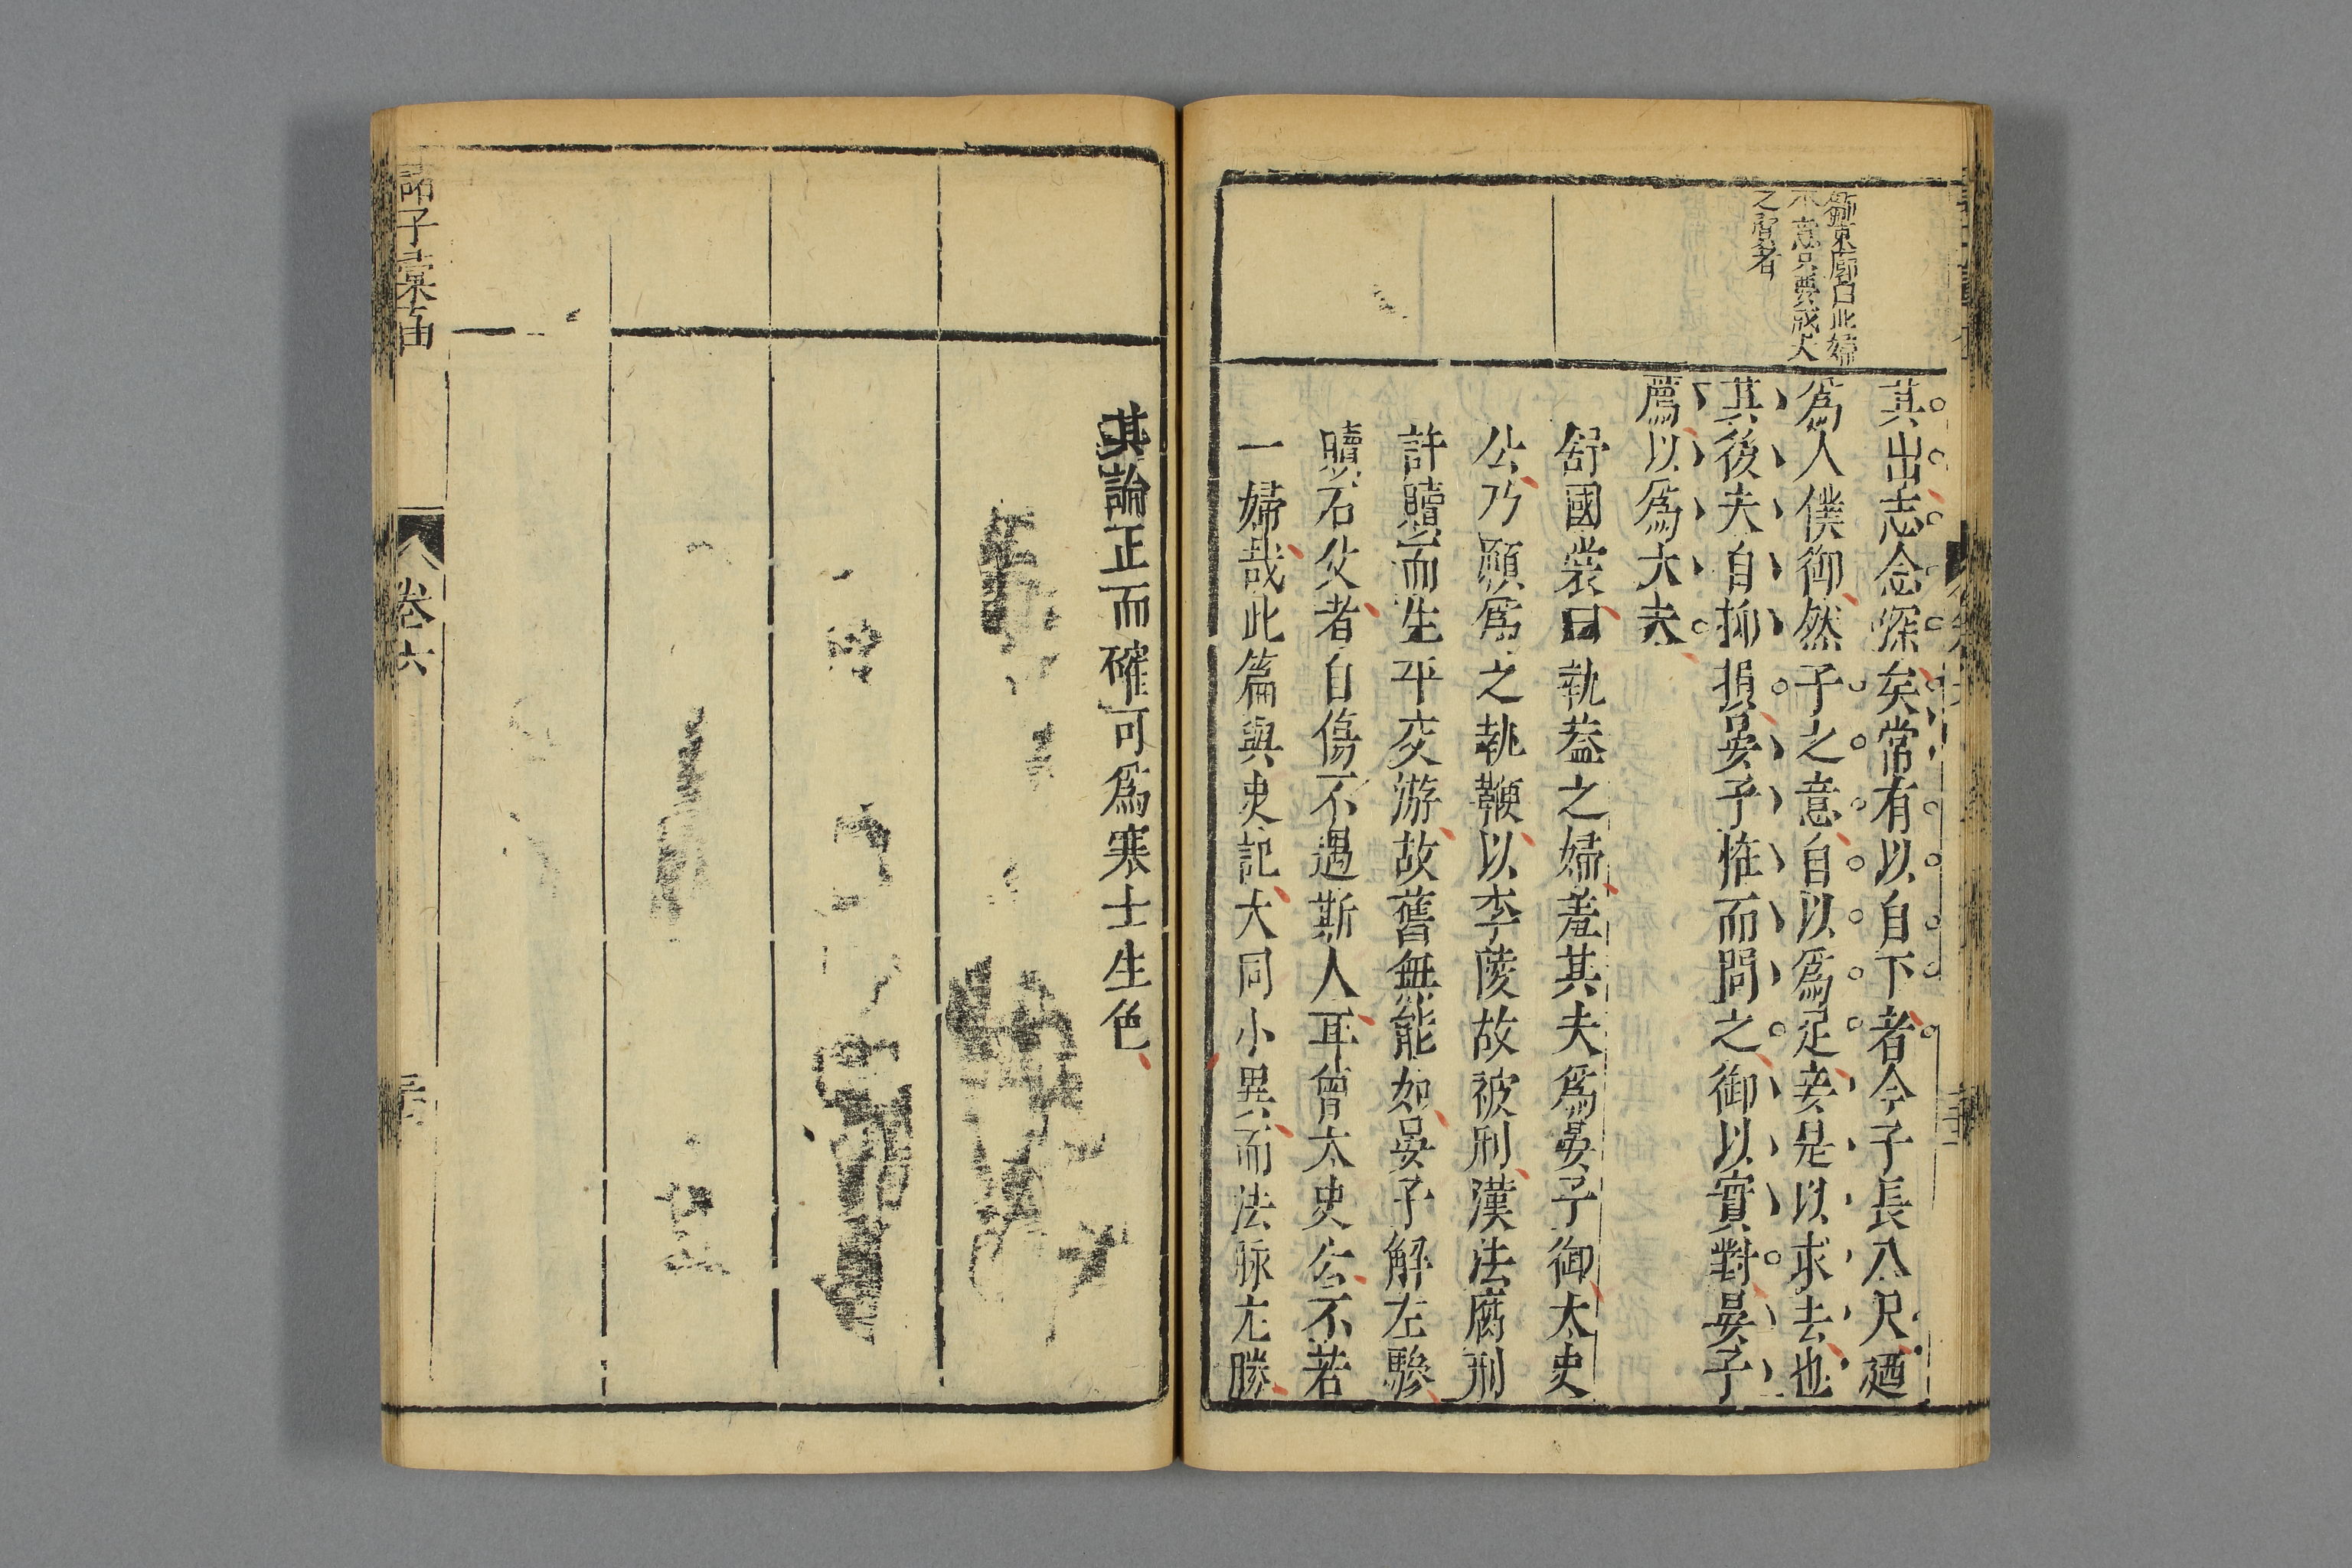 鄒東廓曰此婦
不意只要成夫
之賢者
其出志念深矣常有以自下者今子長八尺廼
為人僕御然子之意自以為足妾是以求去也
其後夫自抑損晏子恠而問之御以實對晏子
薦以為大夫
舒國裳曰執葢之婦羞其夫為晏子御太史
公乃願為之執鞭以李陵故被刑漢法腐刑
許贖而生平交游故舊無能如晏子解左驂
贖石父者自傷不遇斯人耳曾太史公不若
一婦哉此篇與史記大同小異而法脉尤勝
其論正而確可為寒士生色
諸子彙函
卷六